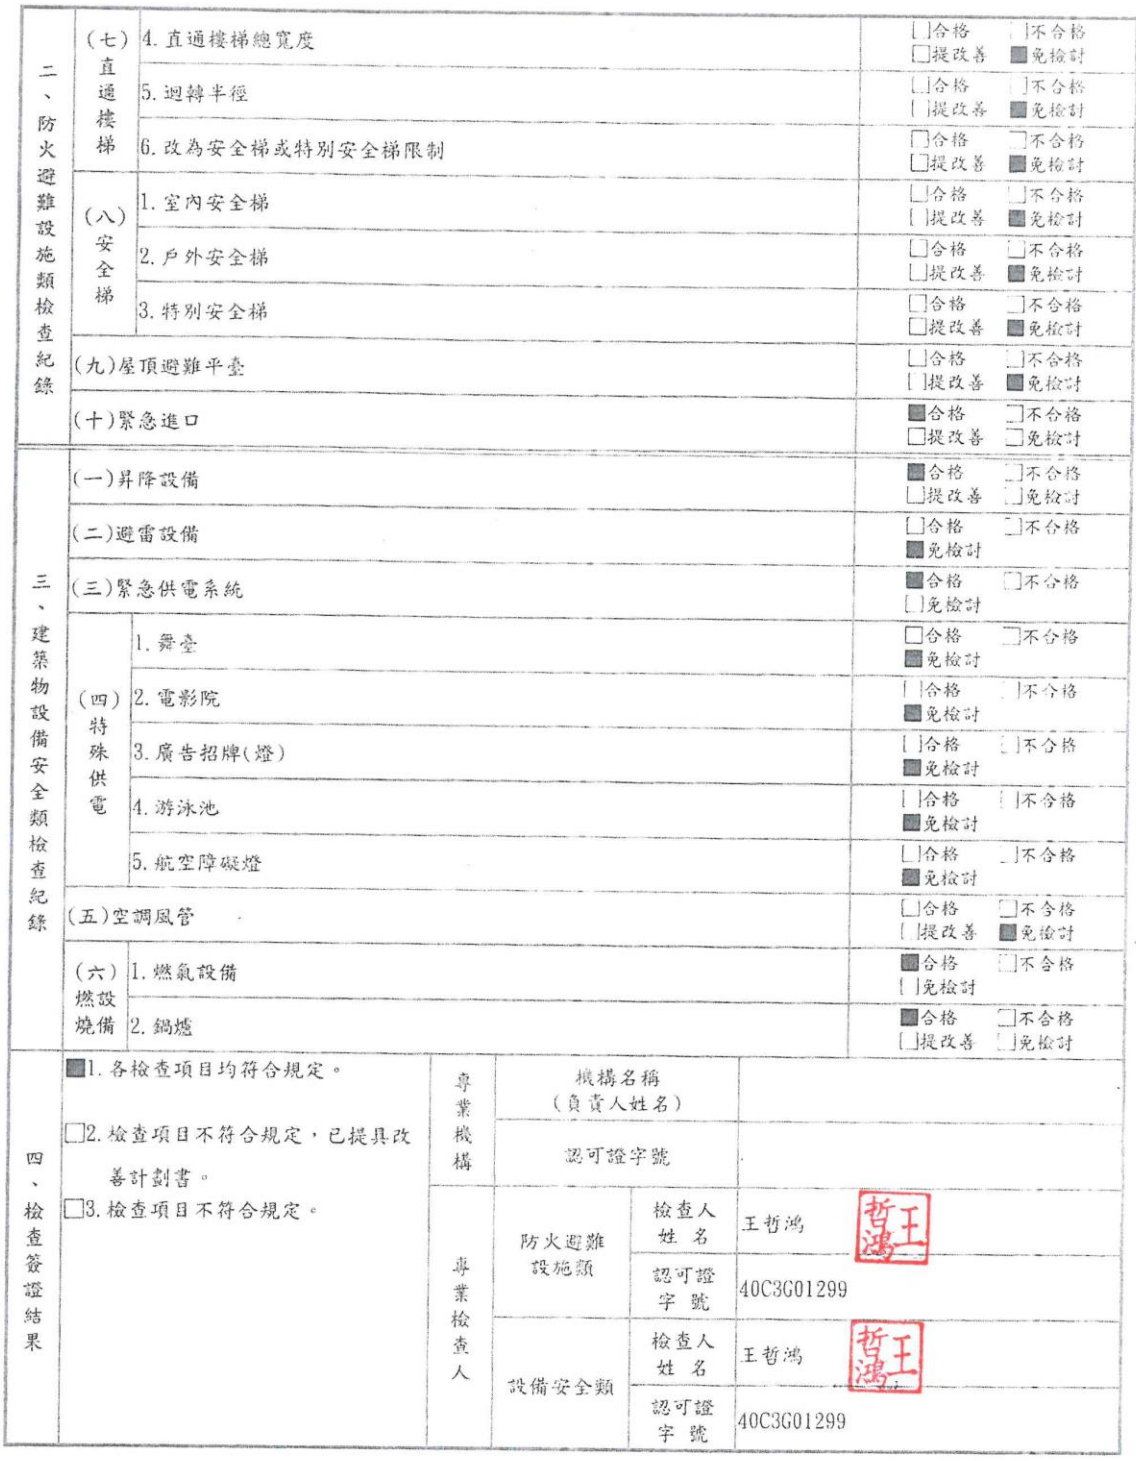 二、防火避難設施類檢查紀錄
(七)直通樓梯
4.直通樓梯總寬度
□合格 □不合格
□提改善 ■免檢討
5.迴轉半徑
□合格 □不合格
□提改善 ■免檢討
6.改為安全梯或特別安全梯限制
□合格 □不合格
□提改善 ■免檢討
(八)安全梯
1.室內安全梯
□合格 □不合格
□提改善 ■免檢討
2.戶外安全梯
□合格 □不合格
□提改善 ■免檢討
3.特別安全梯
□合格 □不合格
□提改善 ■免檢討
(九)屋頂避難平臺
□合格 □不合格
□提改善 ■免檢討
(十)緊急進口
■合格 □不合格
□提改善 □免檢討
三、建築物設備安全類檢查紀錄
(一)昇降設備
■合格 □不合格
□提改善 □免檢討
(二)避雷設備
□合格 □不合格
■免檢討
(三)緊急供電系統
■合格 □不合格
□免檢討
(四)特殊供電
1.舞臺
□合格 □不合格
■免檢討
2.電影院
□合格 □不合格
■免檢討
3.廣告招牌(燈)
□合格 □不合格
■免檢討
4.游泳池
□合格 □不合格
■免檢討
5.航空障礙燈
□合格 □不合格
■免檢討
(五)空調風管
□合格 □不合格
□提改善 ■免檢討
(六)
燃設
燒備
1.燃氣設備
■合格 □不合格
□免檢討
2.鍋爐
■合格 □不合格
□提改善 □免檢討
四、檢查簽證結果
■1.各檢查項目均符合規定。
□2.檢查項目不符合規定,已提具改
善計劃書。
□3.檢查項目不符合規定。
專業機構
機構名稱
(負責人姓名)
認可證字號
專業檢查人
防火避難
設施類
檢查人
姓 名
王哲鴻
王哲鴻
認可證
字 號
40C3G01299
設備安全類
檢查人
姓 名
王哲鴻
王哲鴻
認可證
字 號
40C3G01299